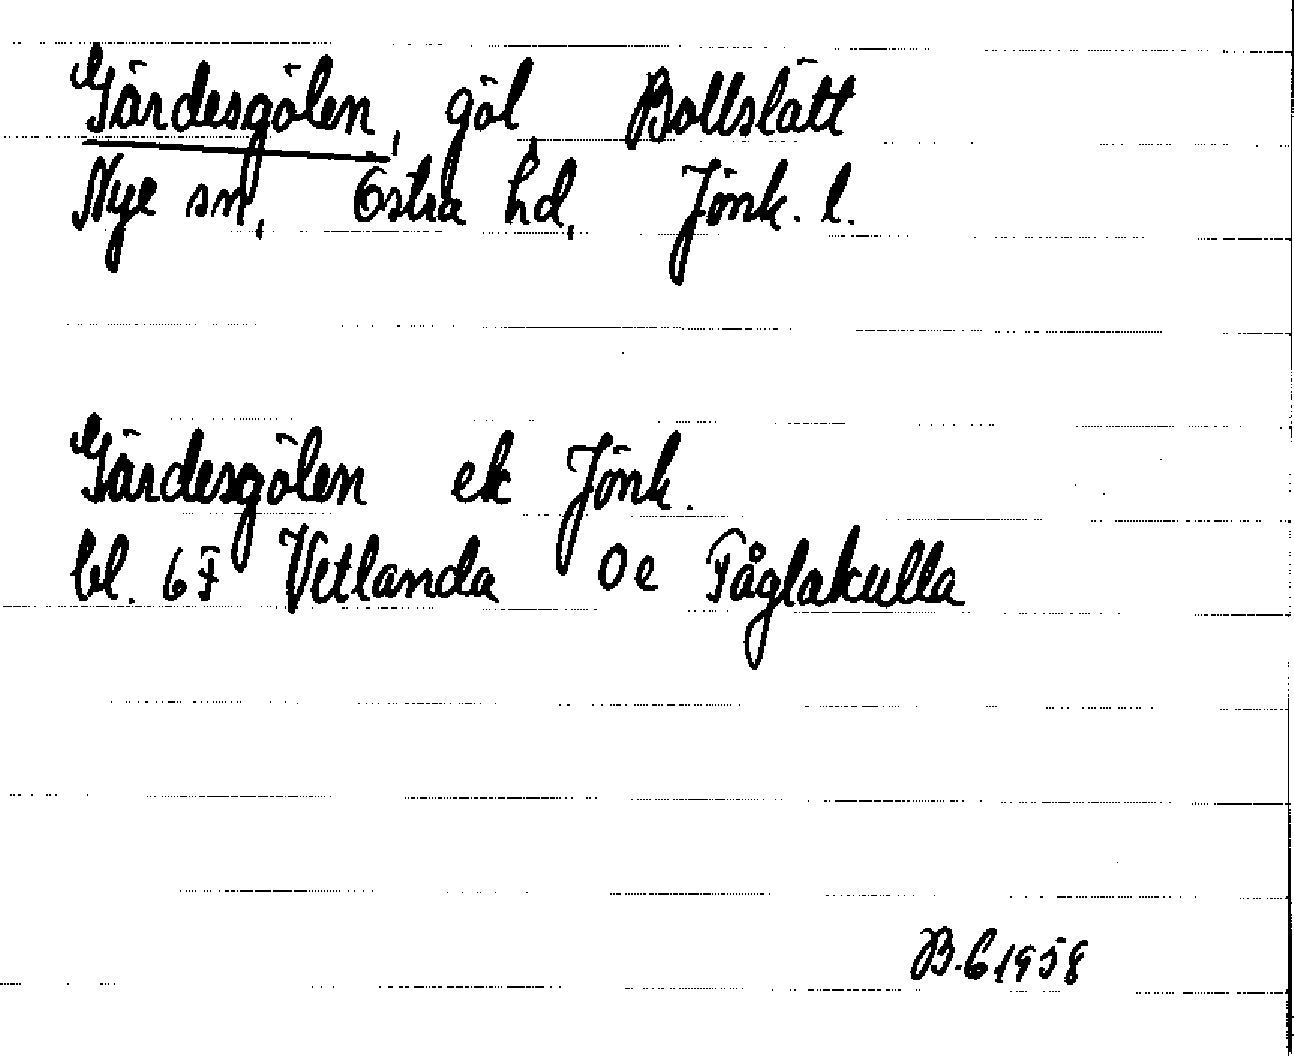 Gärdesgölen, göl, Bollslätt
Nye sn, Östra hd, Jönk. l.
Gärdesgölen ek Jönk.
bl. 6F Vetlanda 0e Fåglakulla
B.E 1958